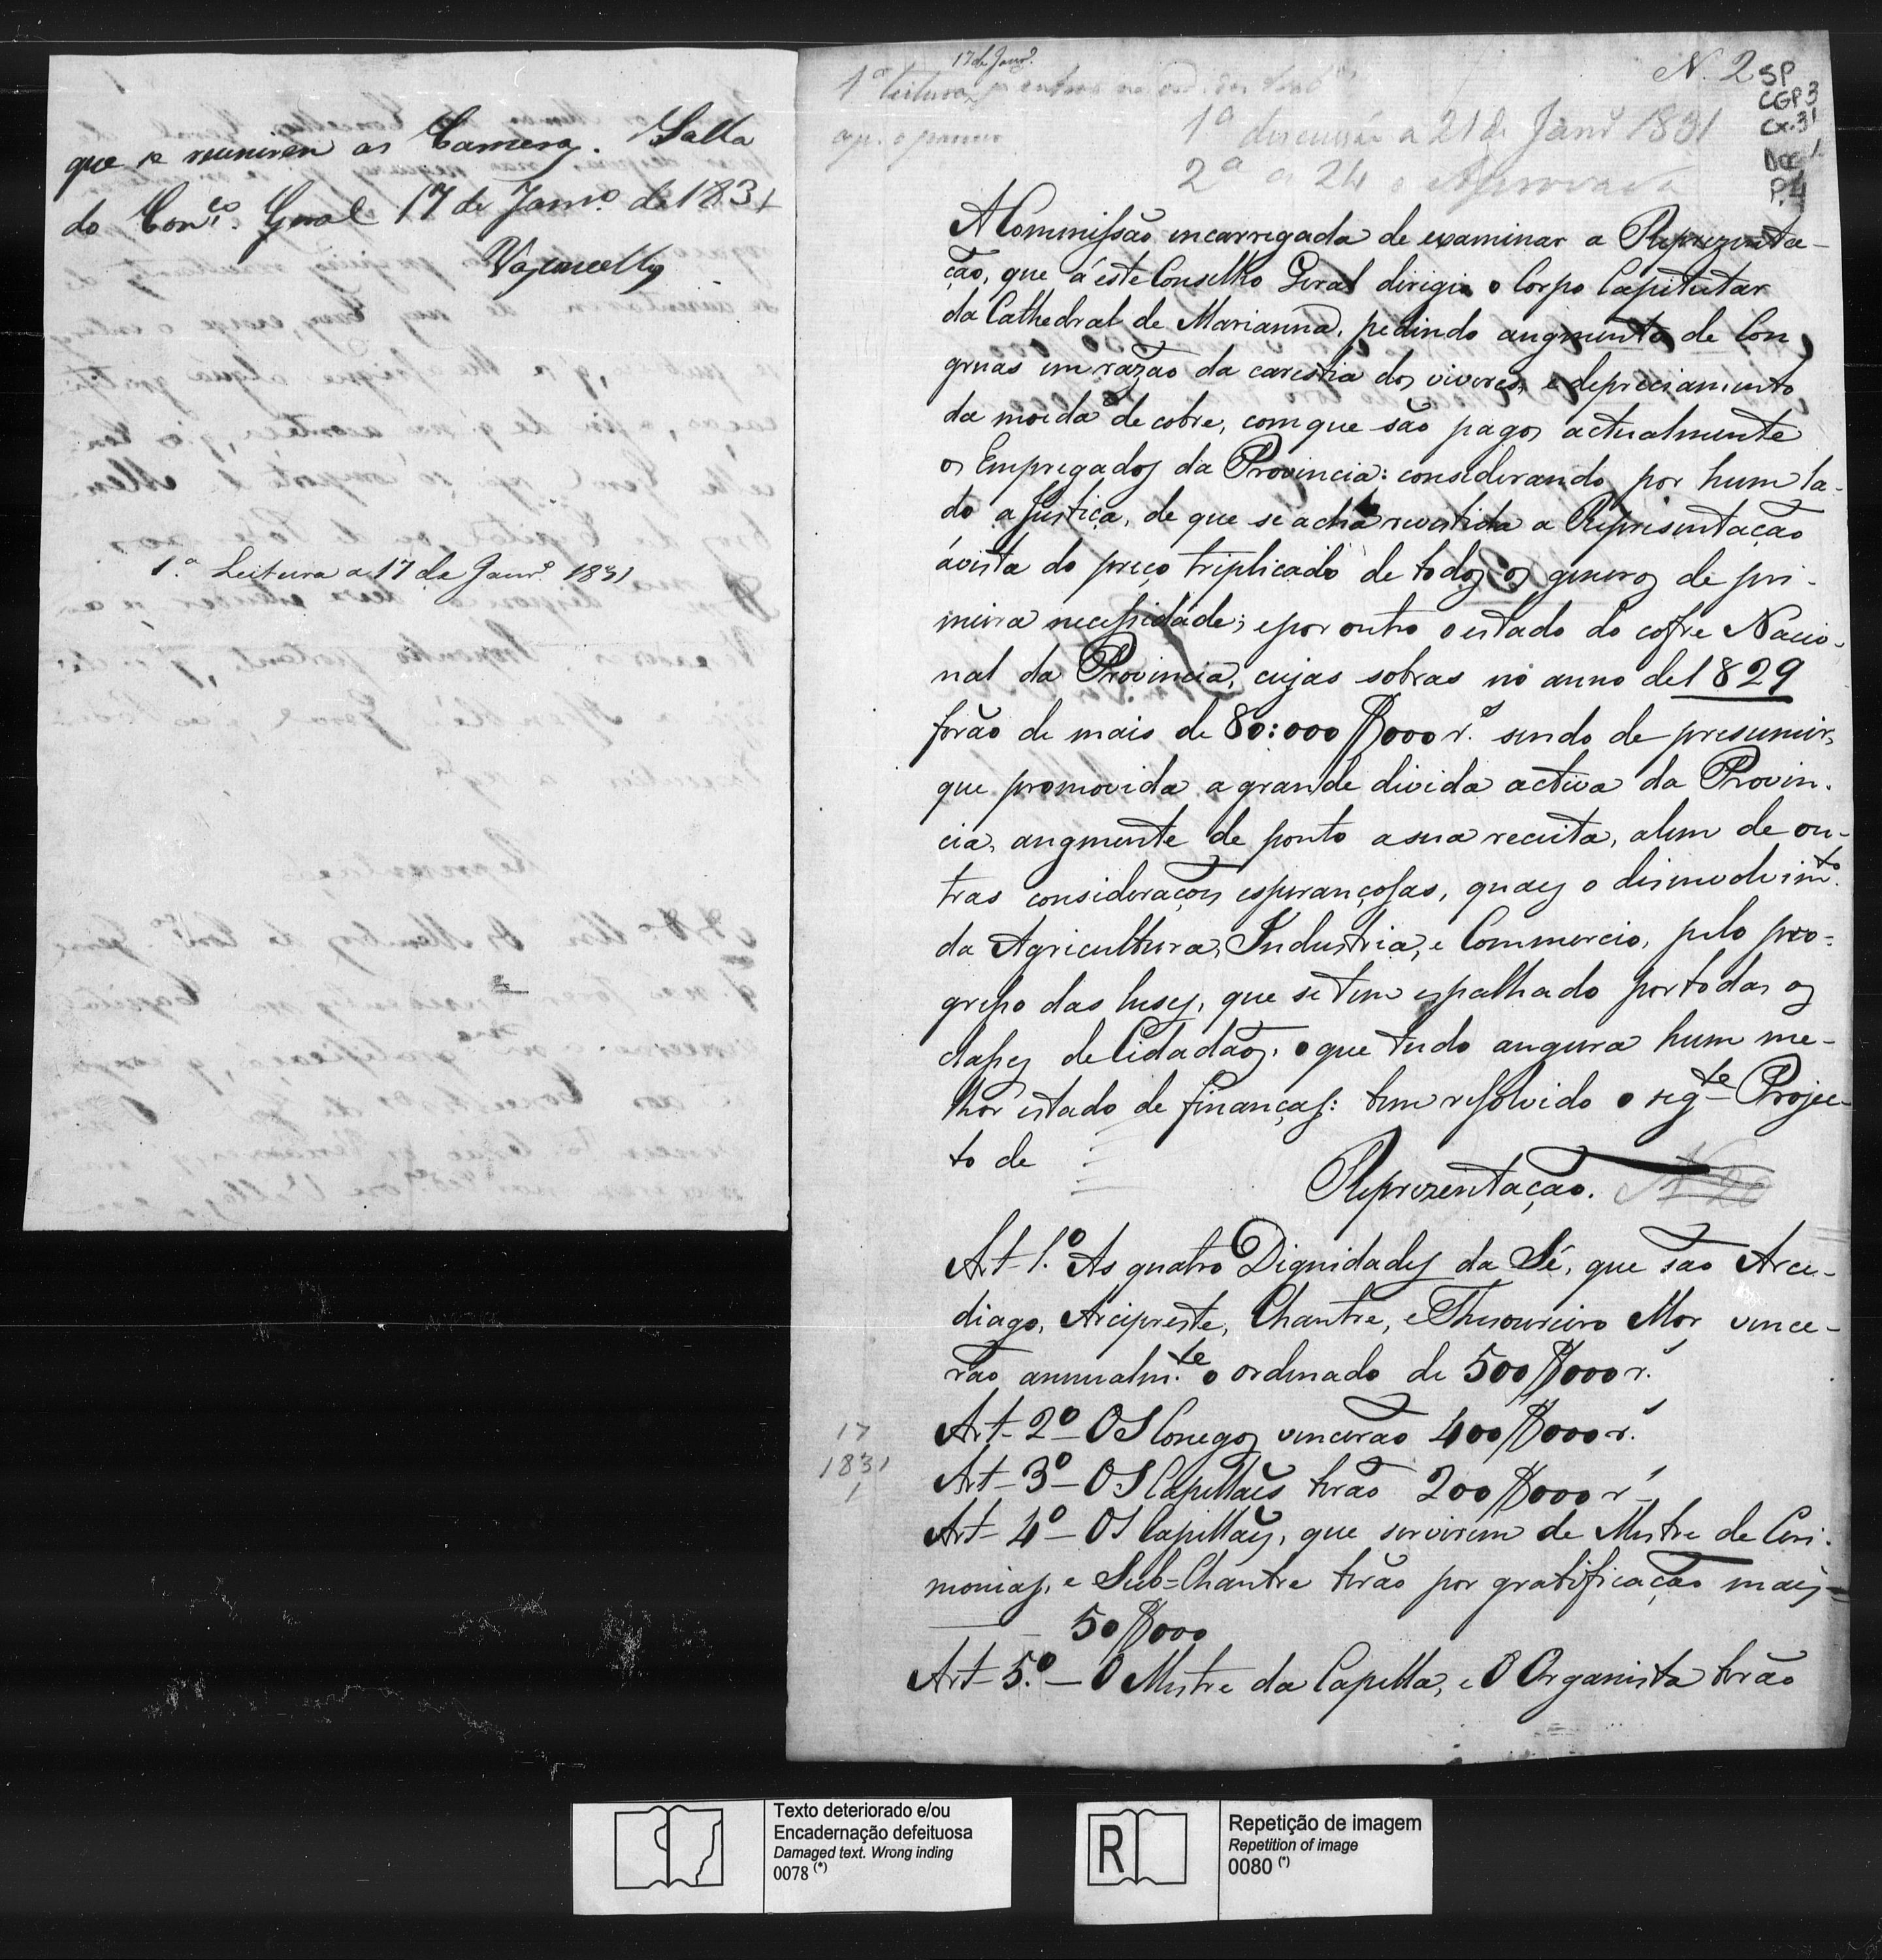 que se reunirem as Camaras. Salla
do Con.co Geral 17 de Janr.o de 1831
Vasconcellos
1.a Leitura a 17 de Janr.o 1831
17 de Janr.o
1a leitura
N. 2
SP
CGP 3
Cx. 31
Doc 1
P. 4
1a discussão a 21 de Janr.o 1831
2a a 24 e Aprovada
A Commissão encarregada de examinar a Reprezenta-
ção, que á este Conselho Geral dirigio o Corpo Capitular
da Cathedral de Marianna, pedindo augmento de Con,
gruas em razão da carestia dos viveres, e depreciamento
da moeda de cobre, com que são pagos actualmente
os Empregados da Provincia: considerando por hum la-
do a Justiça, de que se acha revestida a Representação
ávista do preço triplicado de todos os generos de pri-
meira necessidade; e por outro o estado do cofre Nacio-
nal da Provincia, cujas sobras no anno de 1829
forão de mais de 80:000$000 r.s sendo de presumir,
que promovida a grande divida activa da Provin-
cia, augmente de ponto a sua receita, alem de ou-
tras considerações esperançosas, quaes o desinvolvim.to
da Agricultura, Industria, e Commercio, pelo pro-
gresso das luses, que se tem espalhado por todas as
classes de Cidadãos, o que tudo augura hum me-
lhor estado de finanças: tem resolvido o seg.te Projec-
to de
Reprezentação.
Art 1.o As quatro Dignidades da Sé, que são Arce-
diago, Arcipreste, Chantre, e Thesoureiro Mor vence-
rão annualm.te o ordenado de 500$000 r.s
Art- 2o- OS Conegos vencerão 400$000 r.s
17
1831
1
Art- 3o- OS Capellães terão 200$000 r.s
Art- 4o- OS Capellães, que servirem de Mestre de Ceri-
monias, e Sub=Chantre terão por gratificação mais=
50$000
Art- 5.o- O Mestre da Capella, e O Organista terão
Texto deteriorado e/ou
Encadernação defeituosa
Damaged text. Wrong inding
0078 (*)
R
Repetição de imagem
Repetition of image
0080 (*)